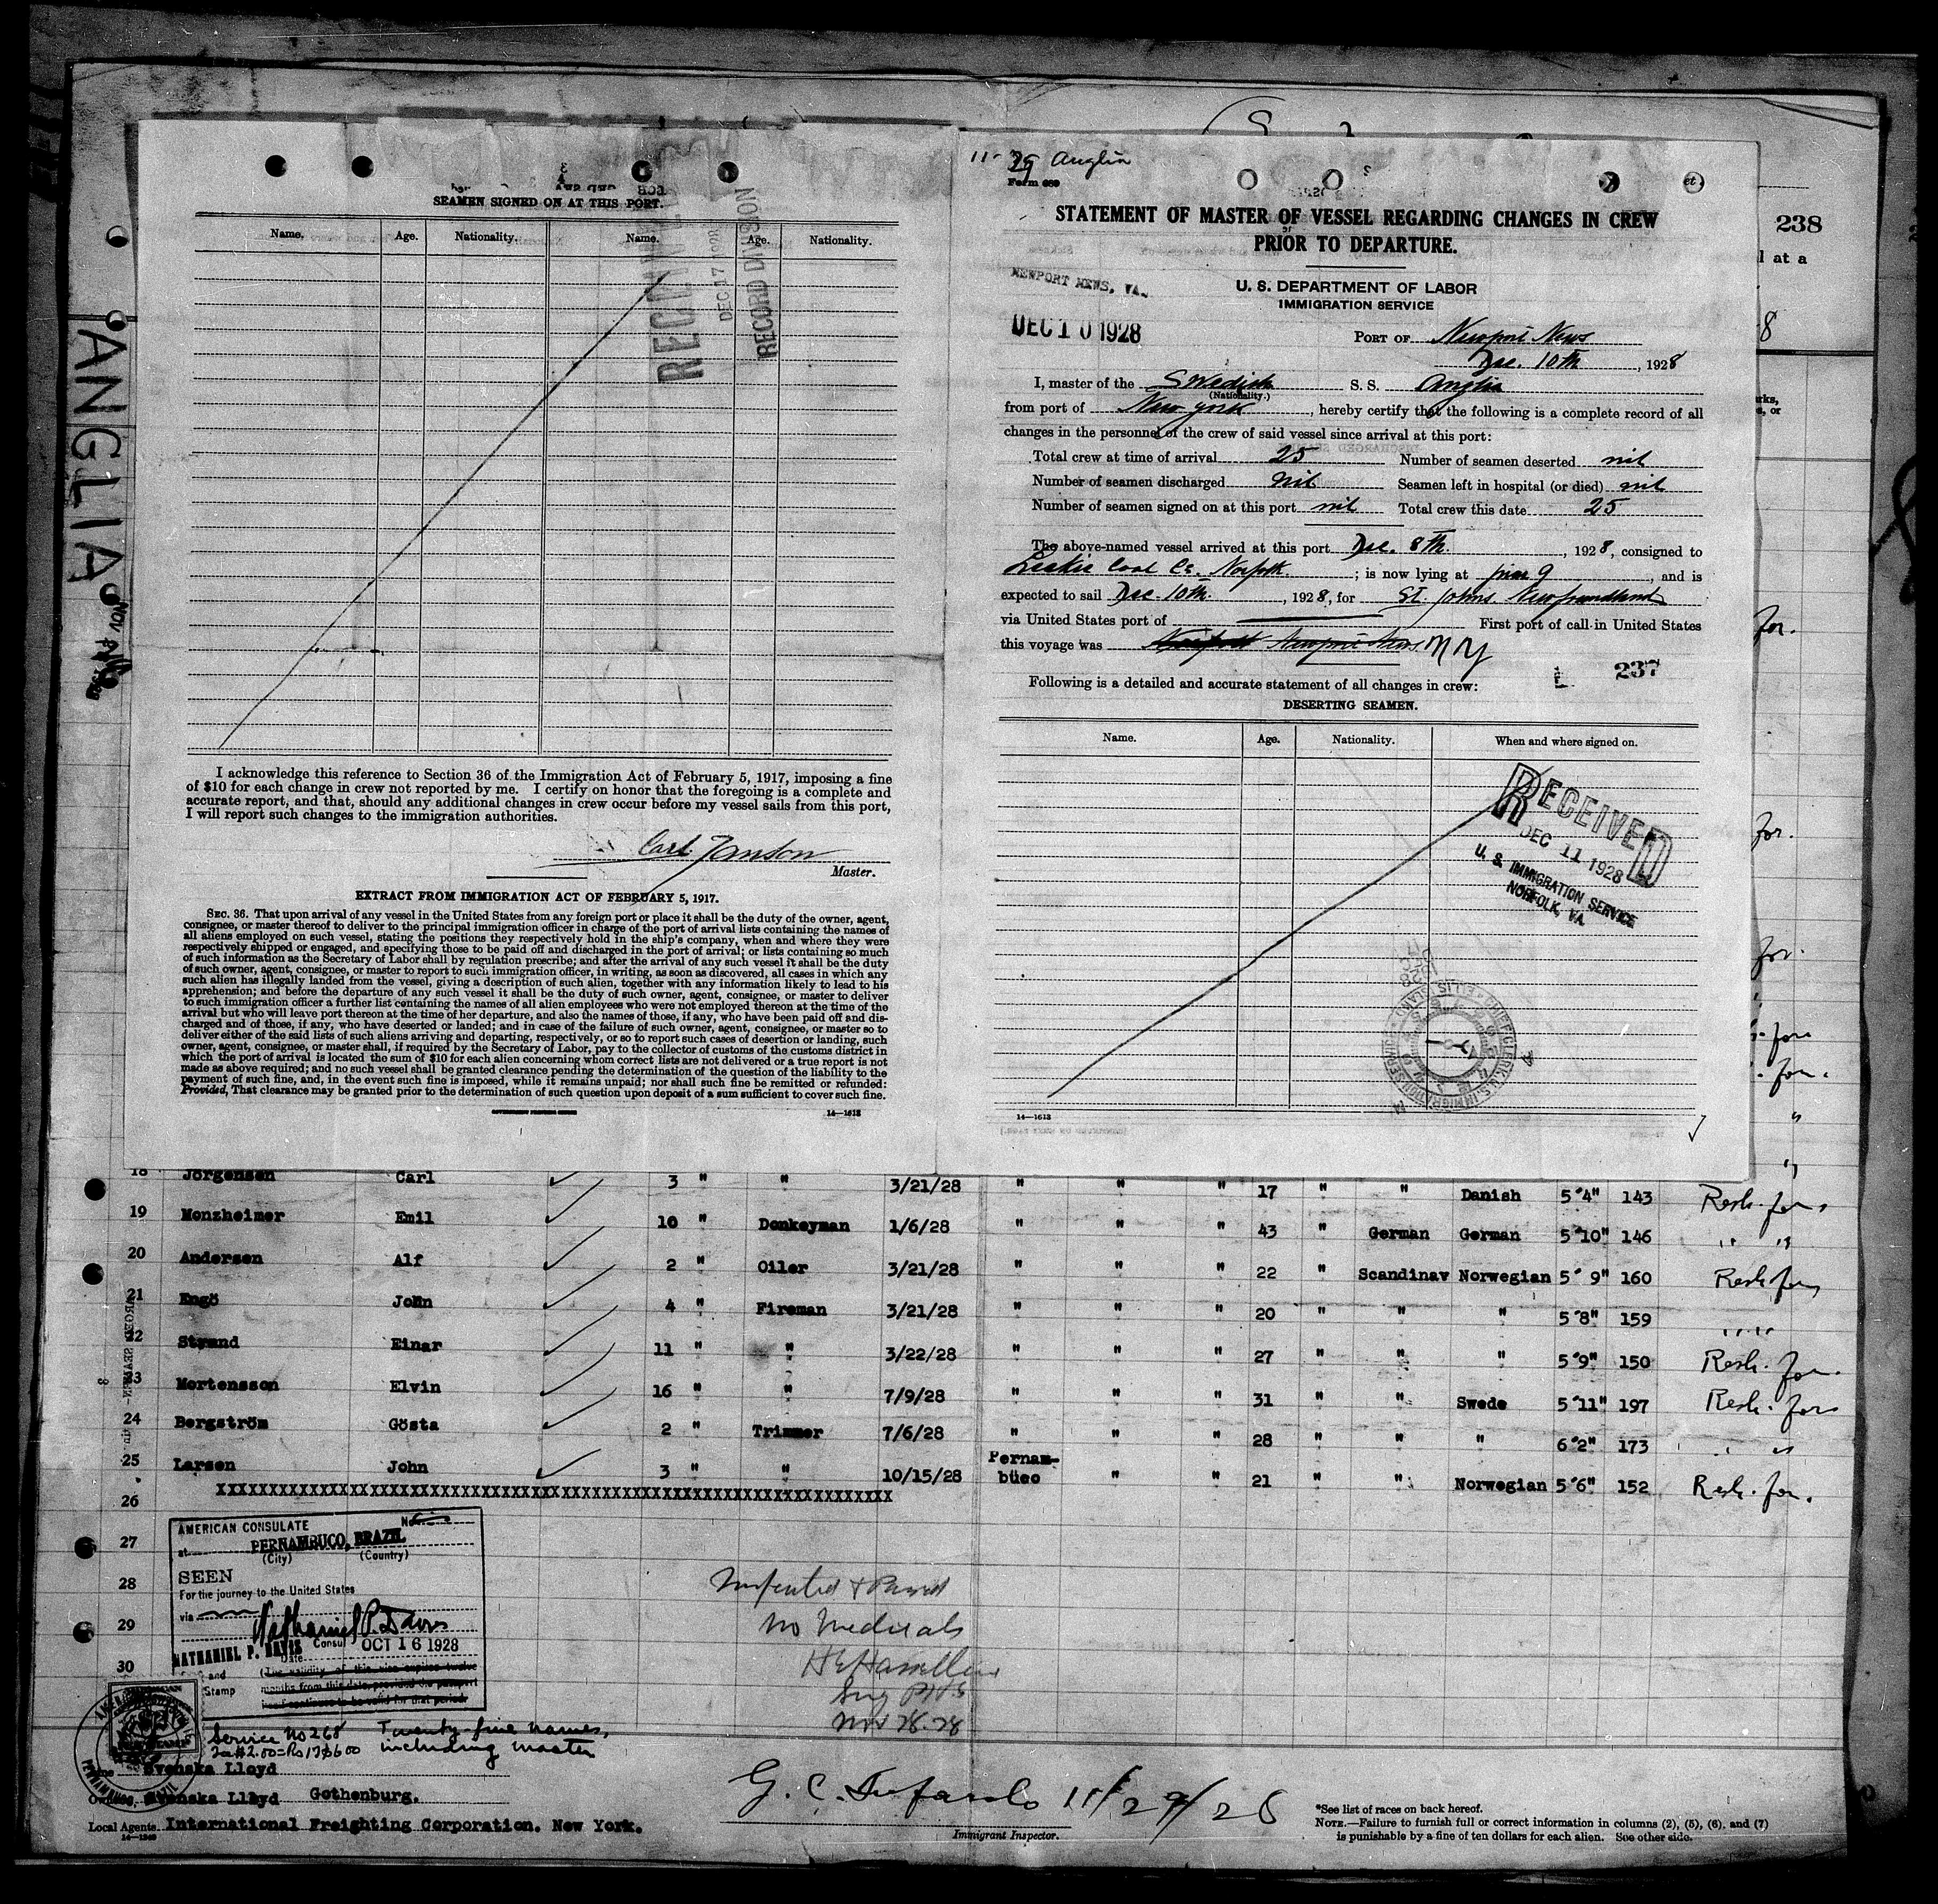 SEAMEN SIGNED ON AT THIS PORT.
Name. Age. Nationality. Name. Age. Nationality.
RECEIVED
DEC 17 1928
RECORD DIVISION
I acknowledge this reference to Section 36 of the Immigration Act of February 5, 1917, imposing a fine
of $10 for each change in crew not reported by me. I certify on honor that the foregoing is a complete and
accurate report, and that, should any additional changes in crew occur before my vessel sails from this port,
I will report such changes to the immigration authorities.
Carl Janson
Master.
EXTRACT FROM IMMIGRATION ACT OF FEBRUARY 5, 1917.
SEC. 36. That upon arrival of any vessel in the United States from any foreign port or place it shall be the duty of the owner, agent,
consignee, or master thereof to deliver to the principal immigration officer in charge of the port of arrival lists containing the names of
all aliens employed on such vessel, stating the positions they respectively hold in the ship's company, when and where they were
respectively shipped or engaged, and specifying those to be paid off and discharged in the port of arrival; or lists containing so much
of such information as the Secretary of Labor shall by regulation prescribe; and after the arrival of any such vessel it shall be the duty
of such owner, agent, consignee, or master to report to such immigration officer, in writing, as soon as discovered, all cases in which any
such alien has illegally landed from the vessel, giving a description of such alien, together with any information likely to lead to his
apprehension; and before the departure of any such vessel it shall be the duty of such owner, agent, consignee, or master to deliver
to such immigration officer a further list containing the names of all alien employees who were not employed thereon at the time of the
arrival but who will leave port thereon at the time of her departure, and also the names of those, if any, who have been paid off and dis-
charged and of those, if any, who have deserted or landed; and in case of the failure of such owner, agent, consignee, or master so to
deliver either of the said lists of such aliens arriving and departing, respectively, or so to report such cases of desertion or landing, such
owner, agent, consignee, or master shall, if required by the Secretary of Labor, pay to the collector of customs of the customs district in
which the port of arrival is located the sum of $10 for each alien concerning whom correct lists are not delivered or a true report is not
made as above required; and no such vessel shall be granted clearance pending the determination of the question of the liability to the
payment of such fine, and, in the event such fine is imposed, while it remains unpaid; nor shall such fine be remitted or refunded:
Provided, That clearance may be granted prior to the determination of such question upon deposit of a sum sufficient to cover such fine.
14—1613
11-29 Anglia
Form 689
STATEMENT OF MASTER OF VESSEL REGARDING CHANGES IN CREW
PRIOR TO DEPARTURE.
NEWPORT NEWS, VA.
U. S. DEPARTMENT OF LABOR
IMMIGRATION SERVICE
DEC 10 1928
PORT OF Newport News
Dec. 10th, 1928
I, master of the Swedish S. S. Anglia
(Nationality.)
from port of New York, hereby certify that the following is a complete record of all
changes in the personnel of the crew of said vessel since arrival at this port:
Total crew at time of arrival 25 Number of seamen deserted nil
Number of seamen discharged nil Seamen left in hospital (or died) nil
Number of seamen signed on at this port nil Total crew this date 25
The above-named vessel arrived at this port Dec. 8th, 1928, consigned to
Leckie Coal Co. Norfolk; is now lying at pier 9, and is
expected to sail Dec. 10th, 1928, for St. Johns. Newfoundland
via United States port of First port of call in United States
this voyage was Norfolk Newport News NY
237
Following is a detailed and accurate statement of all changes in crew:
DESERTING SEAMEN.
Name. Age. Nationality. When and where signed on.
RECEIVED
DEC 11 1928
U. S. IMMIGRATION SERVICE
NORFOLK, VA
14—1613
238
l at a
8
for.
for.
for.
for
for.
ANGLIA
18 Jörgensen Carl 3 " " 3/21/28 " " " 17 " " Danish 5'4" 143 Resh. for.
19 Monzheimer Emil 10 " Donkeyman 1/6/28 " " " 43 " German German 5'10" 146 " "
20 Andersen Alf 2 " Oiler 3/21/28 " " " 22 " Scandinav Norwegian 5' 9" 160 Resh for
21 Engö John 4 " Fireman 3/21/28 " " " 20 " " " 5'8" 159 " "
22 Strand Einar 11 " " 3/22/28 " " " 27 " " " 5'9" 150 Resh. for.
23 Mortensson Elvin 16 " " 7/9/28 " " " 31 " " Swede 5'11" 197 Resh. for
24 Bergström Gösta 2 " Trimmer 7/6/28 " " " 28 " " " 6'2" 173 " "
25 Larsen John 3 " " 10/15/28 Pernam-
büco " " 21 " " Norwegian 5'6" 152 Resh. for.
xxxxxxxxxxxxxxxxxxxxxxxxxxxxxxxxxxxxxxxxxxxxxxxxxxxxxxxxx
26
27
28
29
30
AMERICAN CONSULATE No.
at PERNAMBUCO, BRAZIL
(City) (Country)
SEEN
For the journey to the United States
via
Nathaniel P. Davis
NATHANIEL P. DAVIS Consul OCT 16 1928
Date
and
Stamp
(The validity of this visa expires twelve
months from this date, provided the passport
itself continues to be valid for that period.
Service No 268 Twenty-five names,
including master
Inspected & Passed
No Medicals
Surg PHS
Nov 28.28
Svenska Lloyd
Svenska Lloyd Gothenburg.
Local Agents International Freighting Corporation. New York.
G. C. 11/29/28
Immigrant Inspector.
*See list of races on back hereof.
NOTE.—Failure to furnish full or correct information in columns (2), (5), (6), and (7)
is punishable by a fine of ten dollars for each alien. See other side.